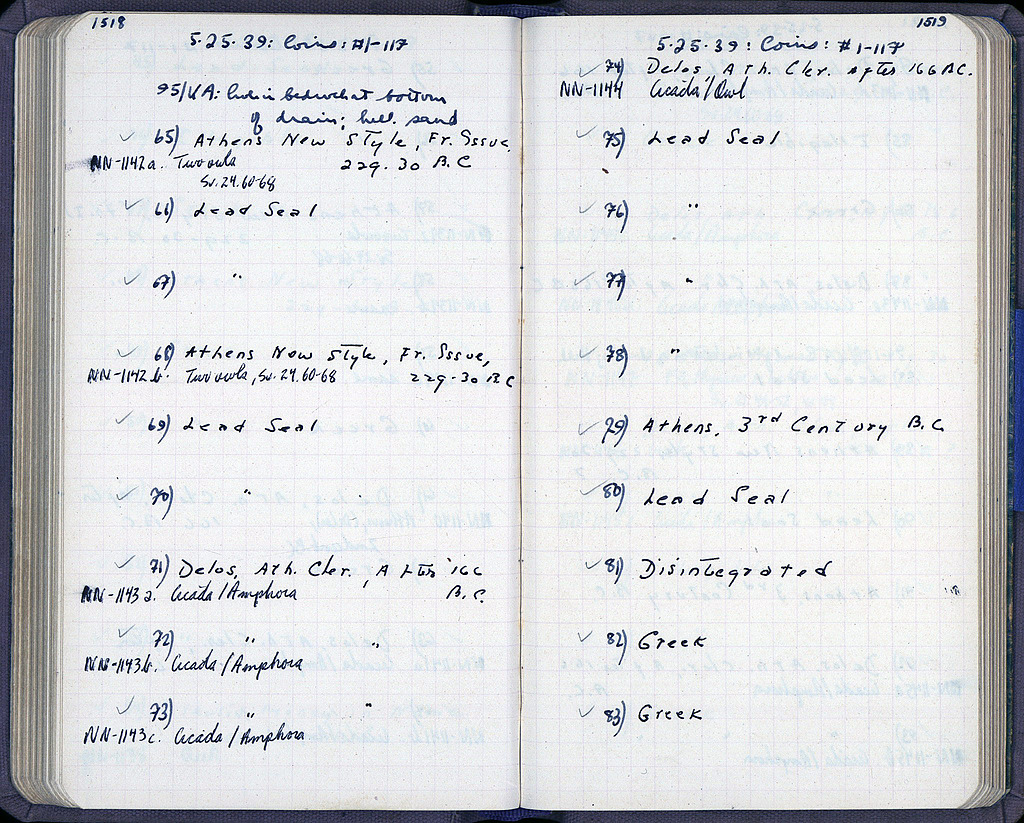 1518
5.25.39: Coins: #1-117
95/KA: hole in bedrock at bottom
of drain; hell. sand
✓ 65) Athens New Style, Fr. Issue,
NN-1142a. Two owls 229-30 B.C
Sv. 24.60-68
✓ 66) Lead Seal
✓ 67) "
✓ 68) Athens New Style, Fr. Issue,
NN-1142b. Two owls, Sv. 24.60-68 229-30 B.C
✓ 69) Lead Seal
✓ 70) " "
✓ 71) Delos, Ath. Cler., After 166
NN-1143a. Cicada/Amphora B.C.
✓ 72) " "
NN-1143b. Cicada/Amphora
✓ 73) " "
NN-1143c. Cicada/Amphora
1519
5.25.39: Coins: #1-117
✓ 74) Delos, Ath. Cler. After 166 B.C.
NN-1144 Cicada/Owl
✓ 75) Lead Seal
✓ 76) "
✓ 77) "
✓ 78) "
✓ 79) Athens, 3rd Century B.C.
✓ 80) Lead Seal
✓ 81) Disintegrated
✓ 82) Greek
✓ 83) Greek